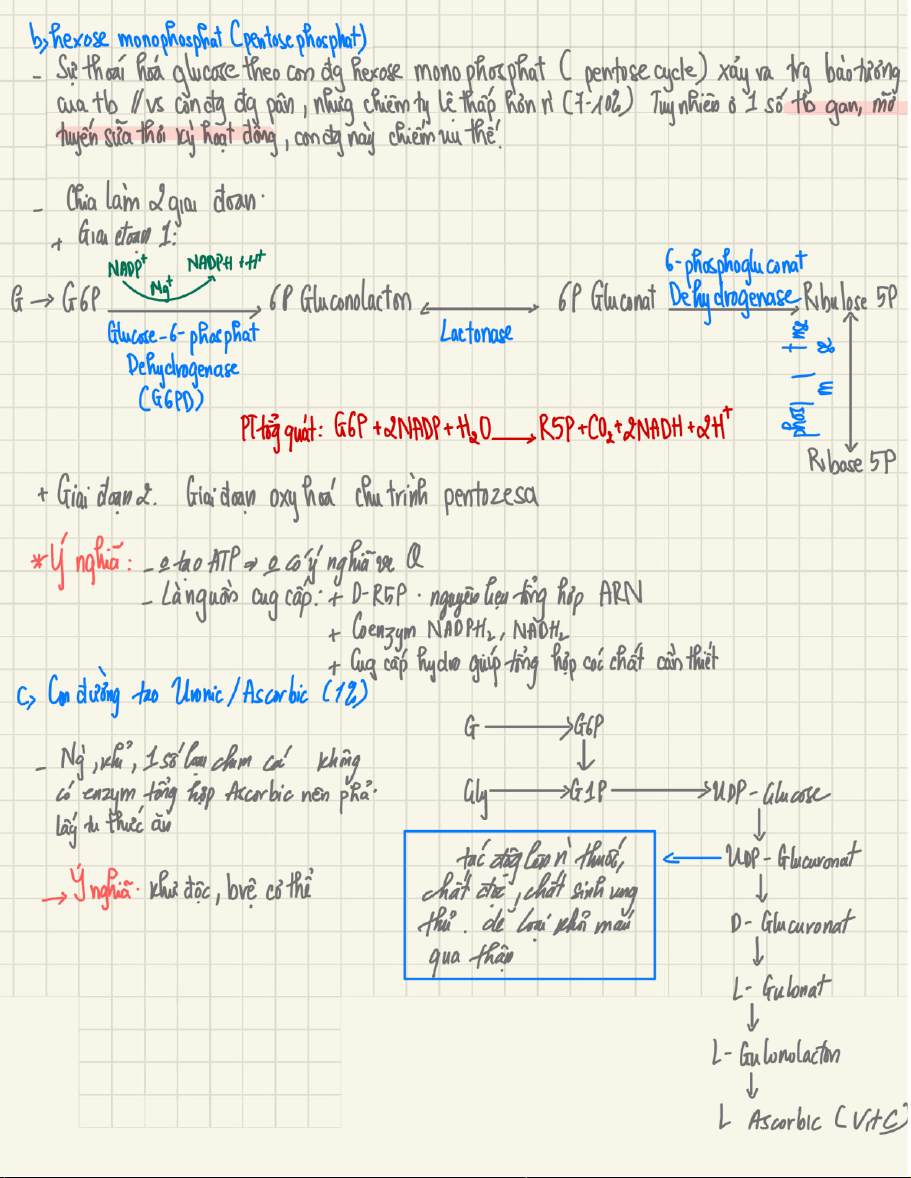 b, hexose monophosphat (pentose phosphat)
- Sự thoái hoá glucose theo con đg hexose monophosphat ( pentose cycle) xảy ra trg bào tương
của tb // vs con đg đg phân, nhưng chiếm tỷ lệ thấp hơn n' (7-10%) Tuy nhiên ở 1 số tb gan, mỡ
tuyến sữa thời kỳ hoạt động, con đg này chiếm ưu thế.
- Chia làm 2 giai đoạn.
+ Giai đoạn 1:
NADP+ Mg+ NADPH + H+
G → G6P → 6P Gluconolacton ↔ 6P Gluconat → Ribulose 5P
Glucose-6-phosphat
Dehydrogenase
(G6PD)
Lactonase
6-phosphogluconat
Dehydrogenase
PT tổng quát: G6P + 2NADP + H2O → R5P + CO2 + 2NADH + 2H+
Ribose 5P
+ Giai đoạn 2. Giai đoạn oxy hoá chu trình pentozesa
* Ý nghĩa: - o tạo ATP → o có ý nghĩa về Q
- Là nguồn cug cấp: + D-R5P. nguyên liệu tổng hợp ARN
+ Coenzym NADPH2, NADH2
+ Cug cấp hydro giúp tổng hợp các chất cần thiết
c, Con đường tạo Uronic/Ascorbic (1%)
- Ng', khỉ, 1 số loại chim cá không
có enzym tổng hợp Ascorbic nên phả.
lấy từ thức ăn
→ Ý nghĩa. khử độc, bvệ cơ thể
G → G6P
↓
Gly → G1P → UDP-Glucose
↓
UDP-Glucuronat
↓
D-Glucuronat
↓
L-Gulonat
↓
L-Gulonolacton
↓
L Ascorbic (VitC)
tác động lên n' thuốc,
chất độc, chất sinh ung
thư. để loại khỏi máu
qua thận